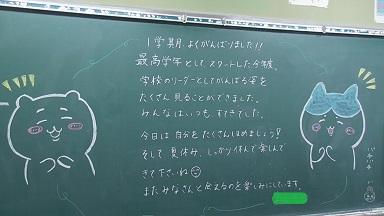 1学期、よくがんばりました!!
最高学年として、スタートした今年度。
学校のリーダーとしてがんばる姿を
たくさん見ることができました。
みんなはいつも、すてきでした。
今日は自分をたくさんほめましょう!
そして夏休み、しっかり休んで楽しんで
きて下さいね
またみなさんと会えるのを楽しみにしています。
パチパチ